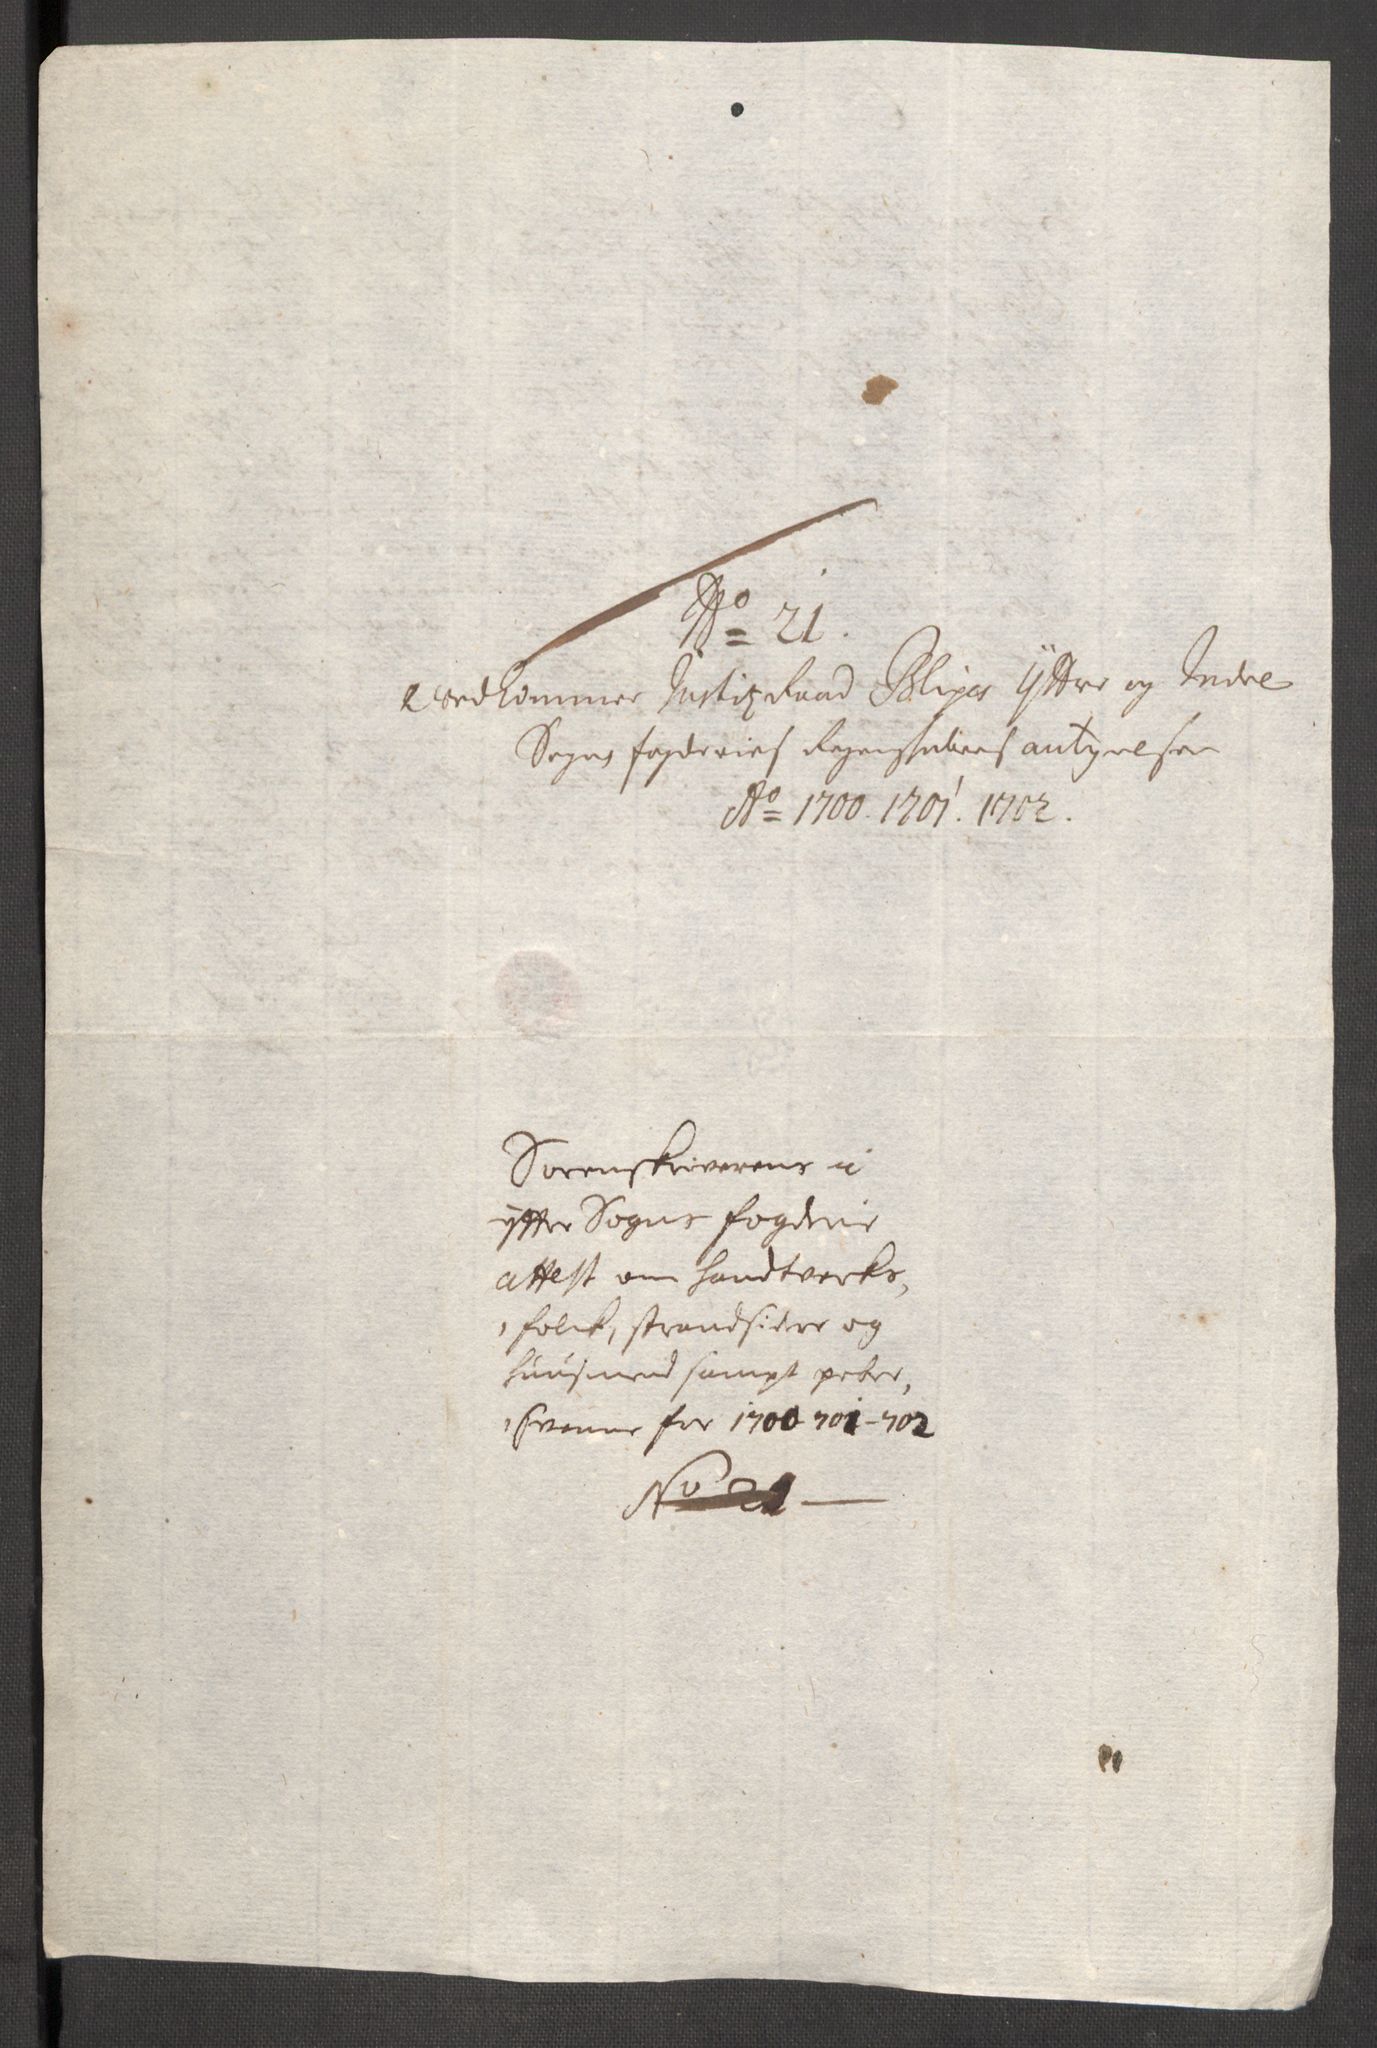 No 21.
Vedkommer Justiz Raad Blixes Ÿttre og Indre
Sogns fogderies Regenskabers antegnelser
Ao 1700. 1701. 1702.
Sorenskriverens i
ÿttre Sogns fogderie
attest om handtverks,
folck, strandsidere og
huusmend sampt peber,
Svenne for 1700 701-702
No 21